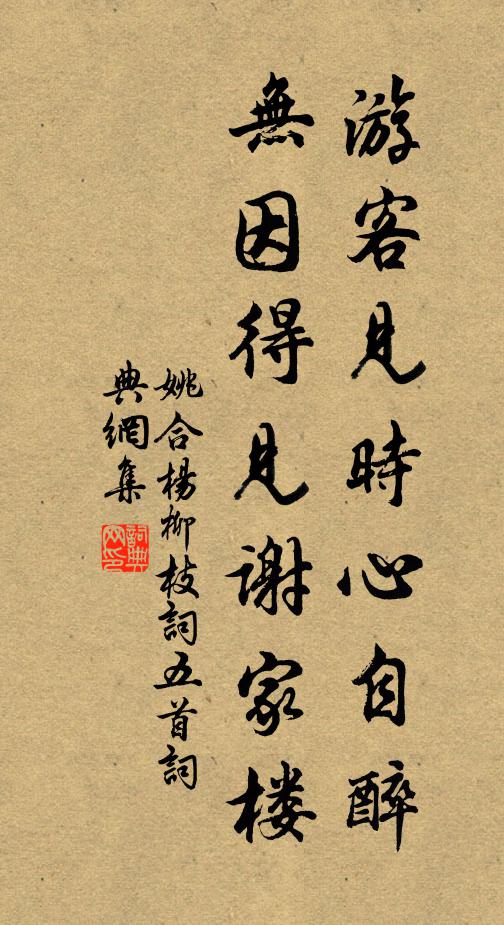 游客見時心自醉
無因得見谢家楼
姚合楊柳枝詞五首詞
典網集
詞典
网印